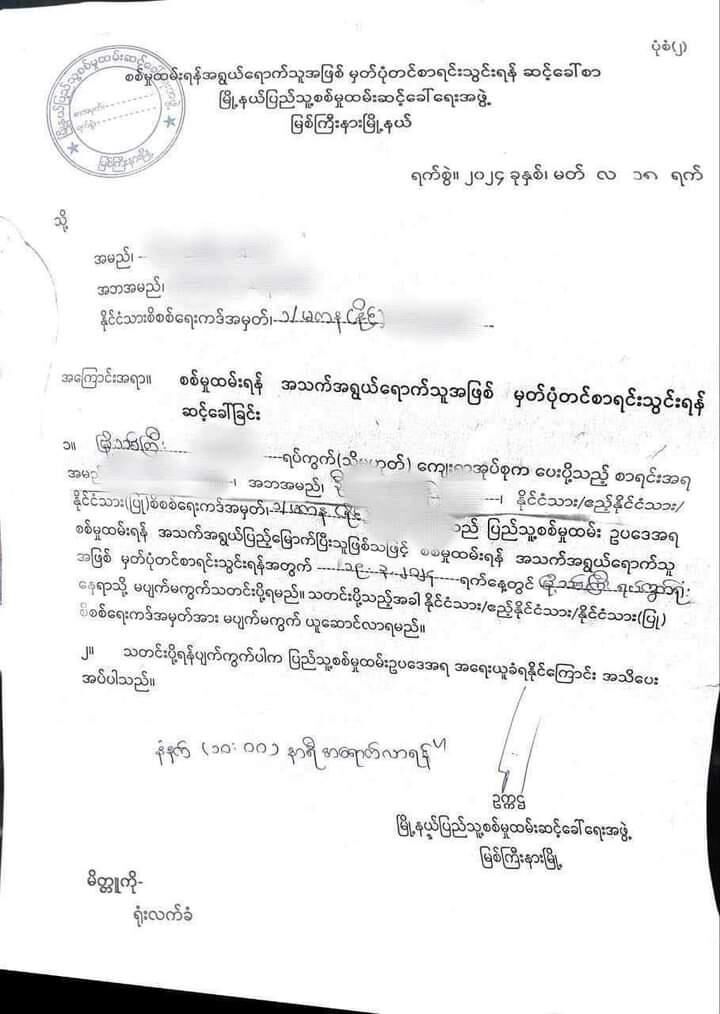 ပုံစံ(၂)
စစ်မှုထမ်းရန်အရွယ်ရောက်သူအဖြစ် မှတ်ပုံတင်စာရင်းသွင်းရန် ဆင့်ခေါ်စာ
မြို့နယ်ပြည်သူ့စစ်မှုထမ်းဆင့်ခေါ်ရေးအဖွဲ့
မြစ်ကြီးနားမြို့နယ်
ရက်စွဲ။ ၂၀၂၄ ခုနှစ်၊ မတ် လ ၁၈ ရက်
သို့
အမည်၊
အဘအမည်၊
နိုင်ငံသားစိစစ်ရေးကဒ်အမှတ်၊ ၁/မကန(နိုင်)
အကြောင်းအရာ။ စစ်မှုထမ်းရန် အသက်အရွယ်ရောက်သူအဖြစ် မှတ်ပုံတင်စာရင်းသွင်းရန်
ဆင့်ခေါ်ခြင်း
၁။ ရပ်ကွက်(သို့မဟုတ်) ကျေးရွာအုပ်စုက ပေးပို့သည့် စာရင်းအရ
အမည် ၊ အဘအမည်၊ ၊ နိုင်ငံသား/ဧည့်နိုင်ငံသား/
နိုင်ငံသား(ပြု)စိစစ်ရေးကဒ်အမှတ်၊ ၁/မကန(နိုင်) သည် ပြည်သူ့စစ်မှုထမ်း ဥပဒေအရ
စစ်မှုထမ်းရန် အသက်အရွယ်ပြည့်မြောက်ပြီးသူဖြစ်သဖြင့် စစ်မှုထမ်းရန် အသက်အရွယ်ရောက်သူ
အဖြစ် မှတ်ပုံတင်စာရင်းသွင်းရန်အတွက် ၁၉.၃.၂၀၂၄ ရက်နေ့တွင်
နေရာသို့ မပျက်မကွက်သတင်းပို့ရမည်။ သတင်းပို့သည့်အခါ နိုင်ငံသား/ဧည့်နိုင်ငံသား/နိုင်ငံသား(ပြု)
စိစစ်ရေးကဒ်အမှတ်အား မပျက်မကွက် ယူဆောင်လာရမည်။
၂။ သတင်းပို့ရန်ပျက်ကွက်ပါက ပြည်သူ့စစ်မှုထမ်းဥပဒေအရ အရေးယူခံရနိုင်ကြောင်း အသိပေး
အပ်ပါသည်။
နံနက် (၁၀:၀၀) နာရီ အရောက်လာရန်
ဥက္ကဋ္ဌ
မြို့နယ်ပြည်သူ့စစ်မှုထမ်းဆင့်ခေါ်ရေးအဖွဲ့
မြစ်ကြီးနားမြို့
မိတ္တူကို-
ရုံးလက်ခံ